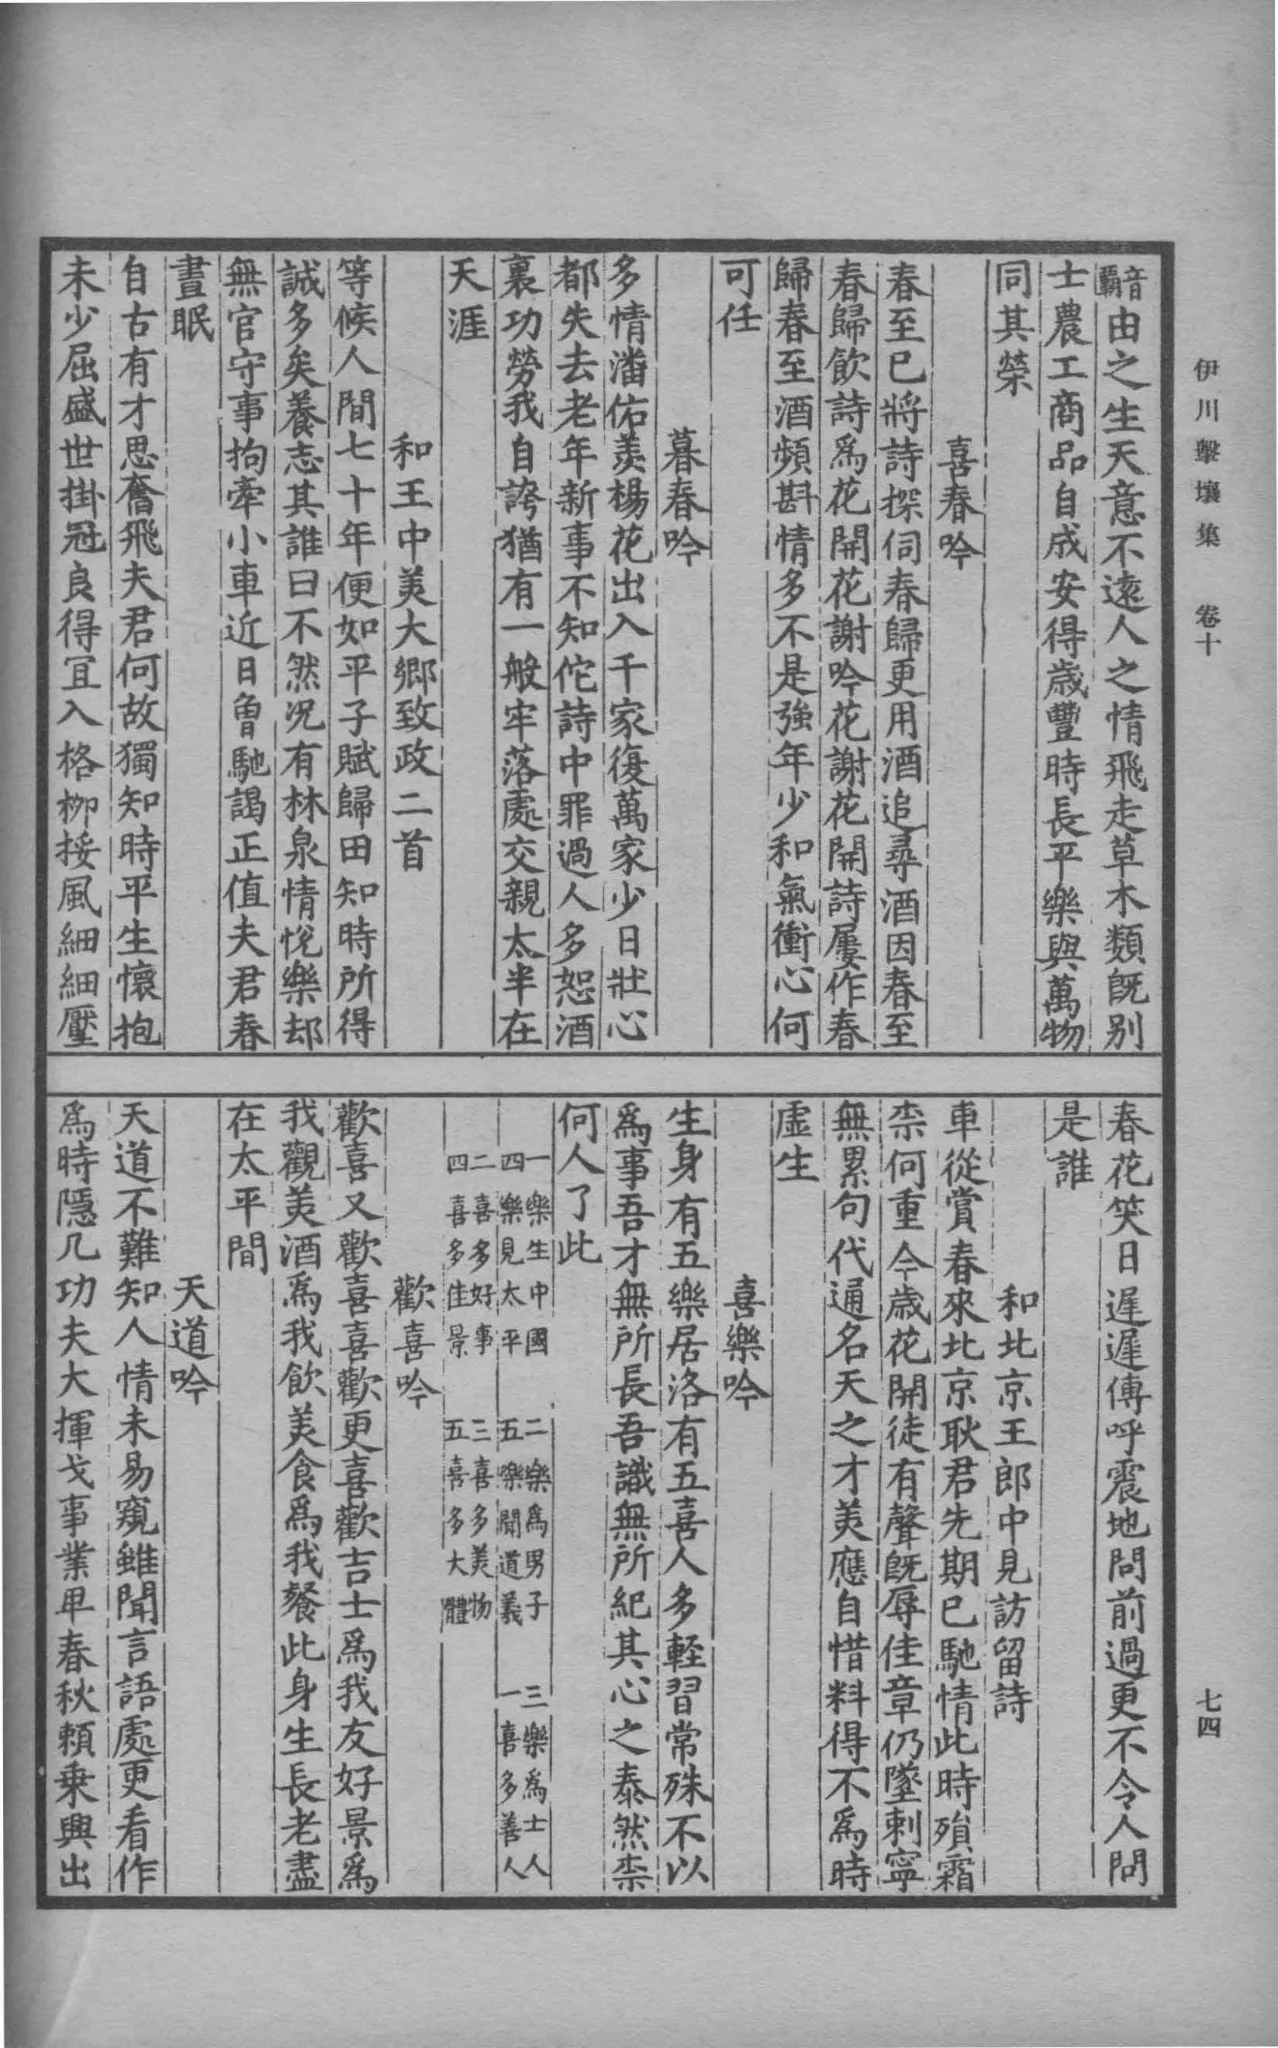 伊川擊壤集　卷十
七四
音霸由之生天意不遠人之情飛走草木類既別
士農工商品自成安得歲豐時長平樂與萬物
同其榮
喜春吟
春至已將詩探伺春歸更用酒追尋酒因春至
春歸飲詩爲花開花謝吟花謝花開詩屢作春
歸春至酒頻斟情多不是強年少和氣衝心何
可任
暮春吟
多情潘佑羨楊花出入千家復萬家少日壯心
都失去老年新事不知佗詩中罪過人多恕酒
裏功勞我自誇猶有一般牢落處交親太半在
天涯
和王中美大鄉致政二首
等候人間七十年便如平子賦歸田知時所得
誠多矣養志其誰曰不然況有林泉情悅樂却
無官守事拘牽小車近日曾馳謁正值夫君春
晝眠
自古有才思奮飛夫君何故獨知時平生懷抱
未少屈盛世掛冠良得宜入格柳挼風細細壓
春花笑日遲遲傳呼震地問前過更不令人問
是誰
和北京王郎中見訪留詩
車從賞春來北京耿君先期已馳情此時殞霜
柰何重今歲花開徒有聲既辱佳章仍墜刺寧
無累句代通名天之才美應自惜料得不爲時
虛生
喜樂吟
生身有五樂居洛有五喜人多輕習常殊不以
爲事吾才無所長吾識無所紀其心之泰然柰
何人了此
一樂生中國　二樂爲男子　三樂爲士人
四樂見太平　五樂聞道義　一喜多善人
二喜多好事　三喜多美物
四喜多佳景　五喜多大體
歡喜吟
歡喜又歡喜喜歡更喜歡吉士爲我友好景爲
我觀美酒爲我飲美食爲我餐此身生長老盡
在太平間
天道吟
天道不難知人情未易窺雖聞言語處更看作
爲時隱几功夫大揮戈事業卑春秋賴乗興出